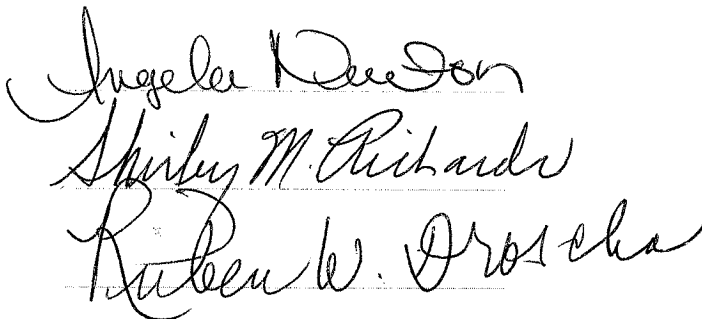 Angela Newton
Shirley M. Richards
Ruben W. Droscha